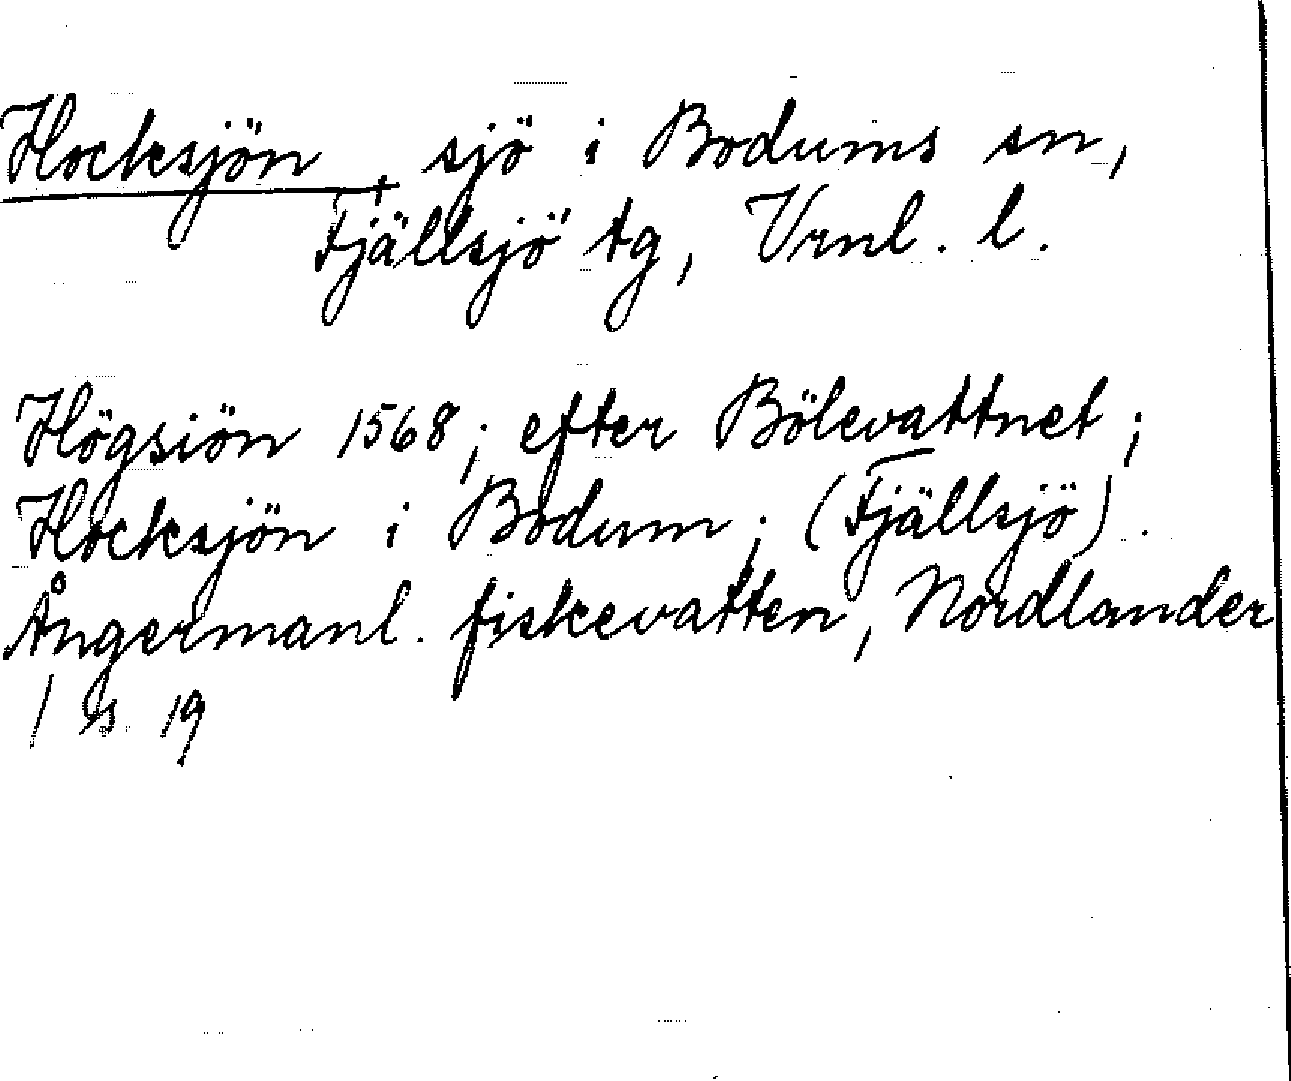 Hocksjön, sjö i Bodums sn,
Fjällsjö tg, Vrnl. l.
Högsiön 1568; efter Bölevattnet;
Hocksjön i Bodum; (Fjällsjö).
Ångermanl. fiskevatten, Nordlander
/ s. 19